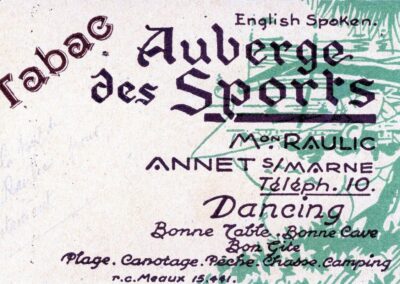 English Spoken.
Tabac
Auberge
des Sports
Mon RAULIC
ANNET S/MARNE
Téléph. 10.
Dancing
Bonne Table. Bonne Cave
Bon Gîte
Plage. Canotage. Pêche. Chasse. Camping
r.c. Meaux 15.461.